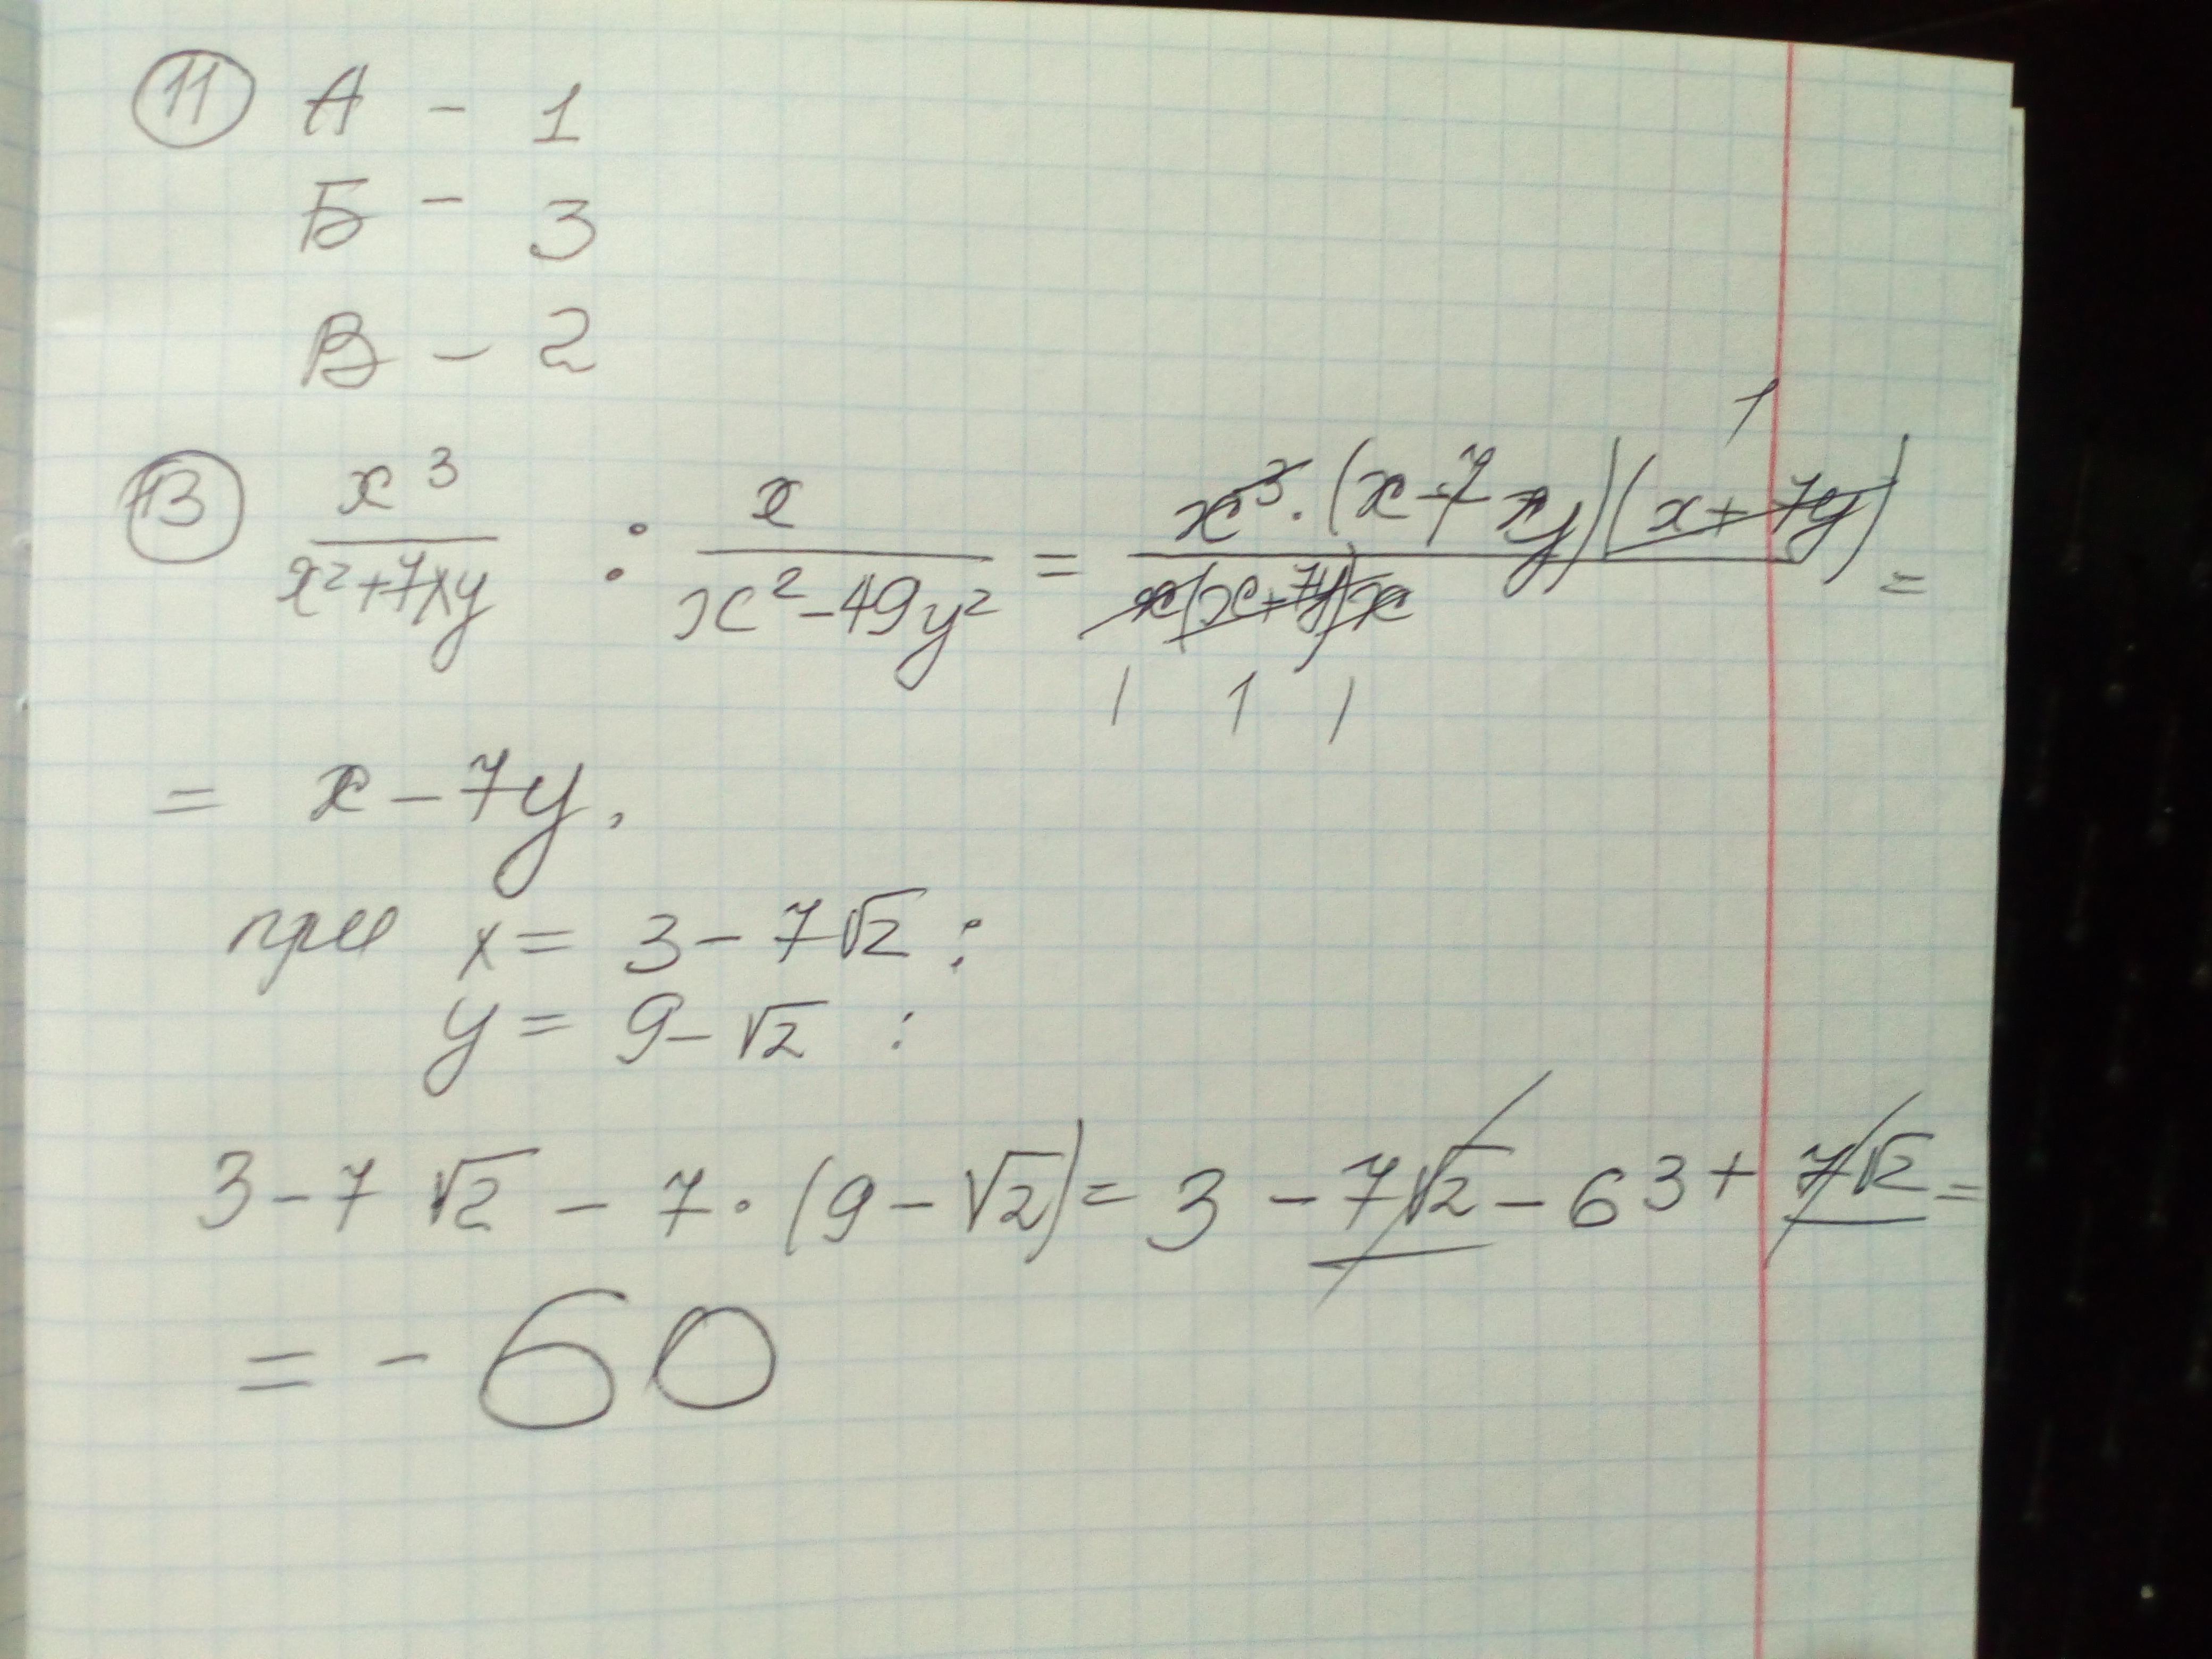 11 А - 1
Б - 3
В - 2
13 x³/(x²+7xy) : x/(x²-49y²) = x³·(x-7y)(x+7y)/(x(x+7y)x) =
1
1 1 1
= x - 7y,
при x = 3 - 7√2 ;
y = 9 - √2 :
3 - 7√2 - 7·(9-√2) = 3 - 7√2 - 63 + 7√2 =
= - 60